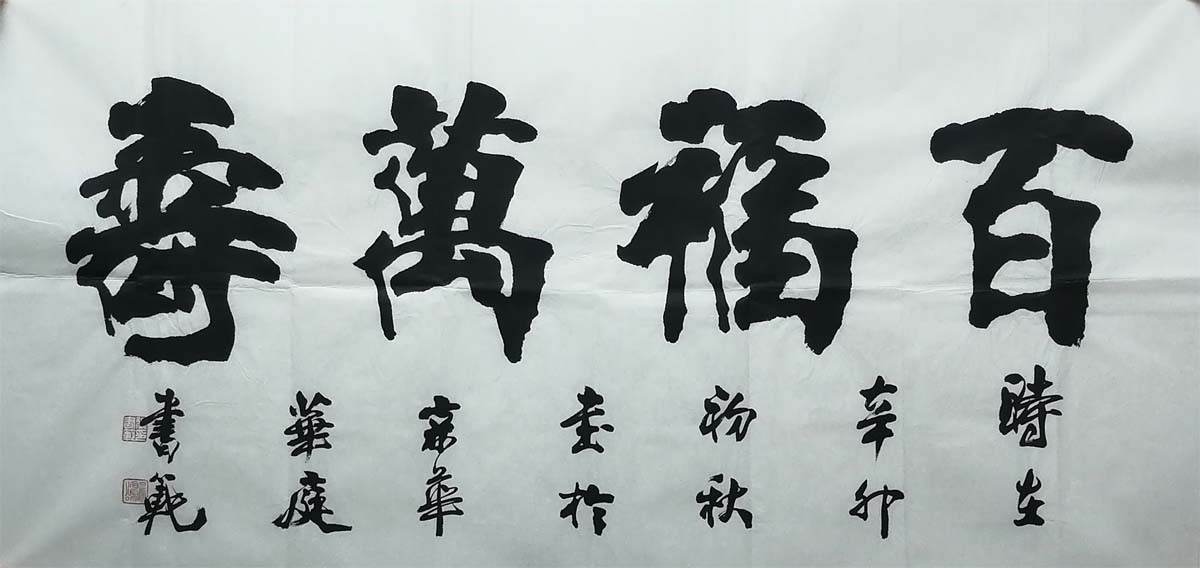 百福萬壽
時在
辛卯
初秋
書於
華
華庭
書範